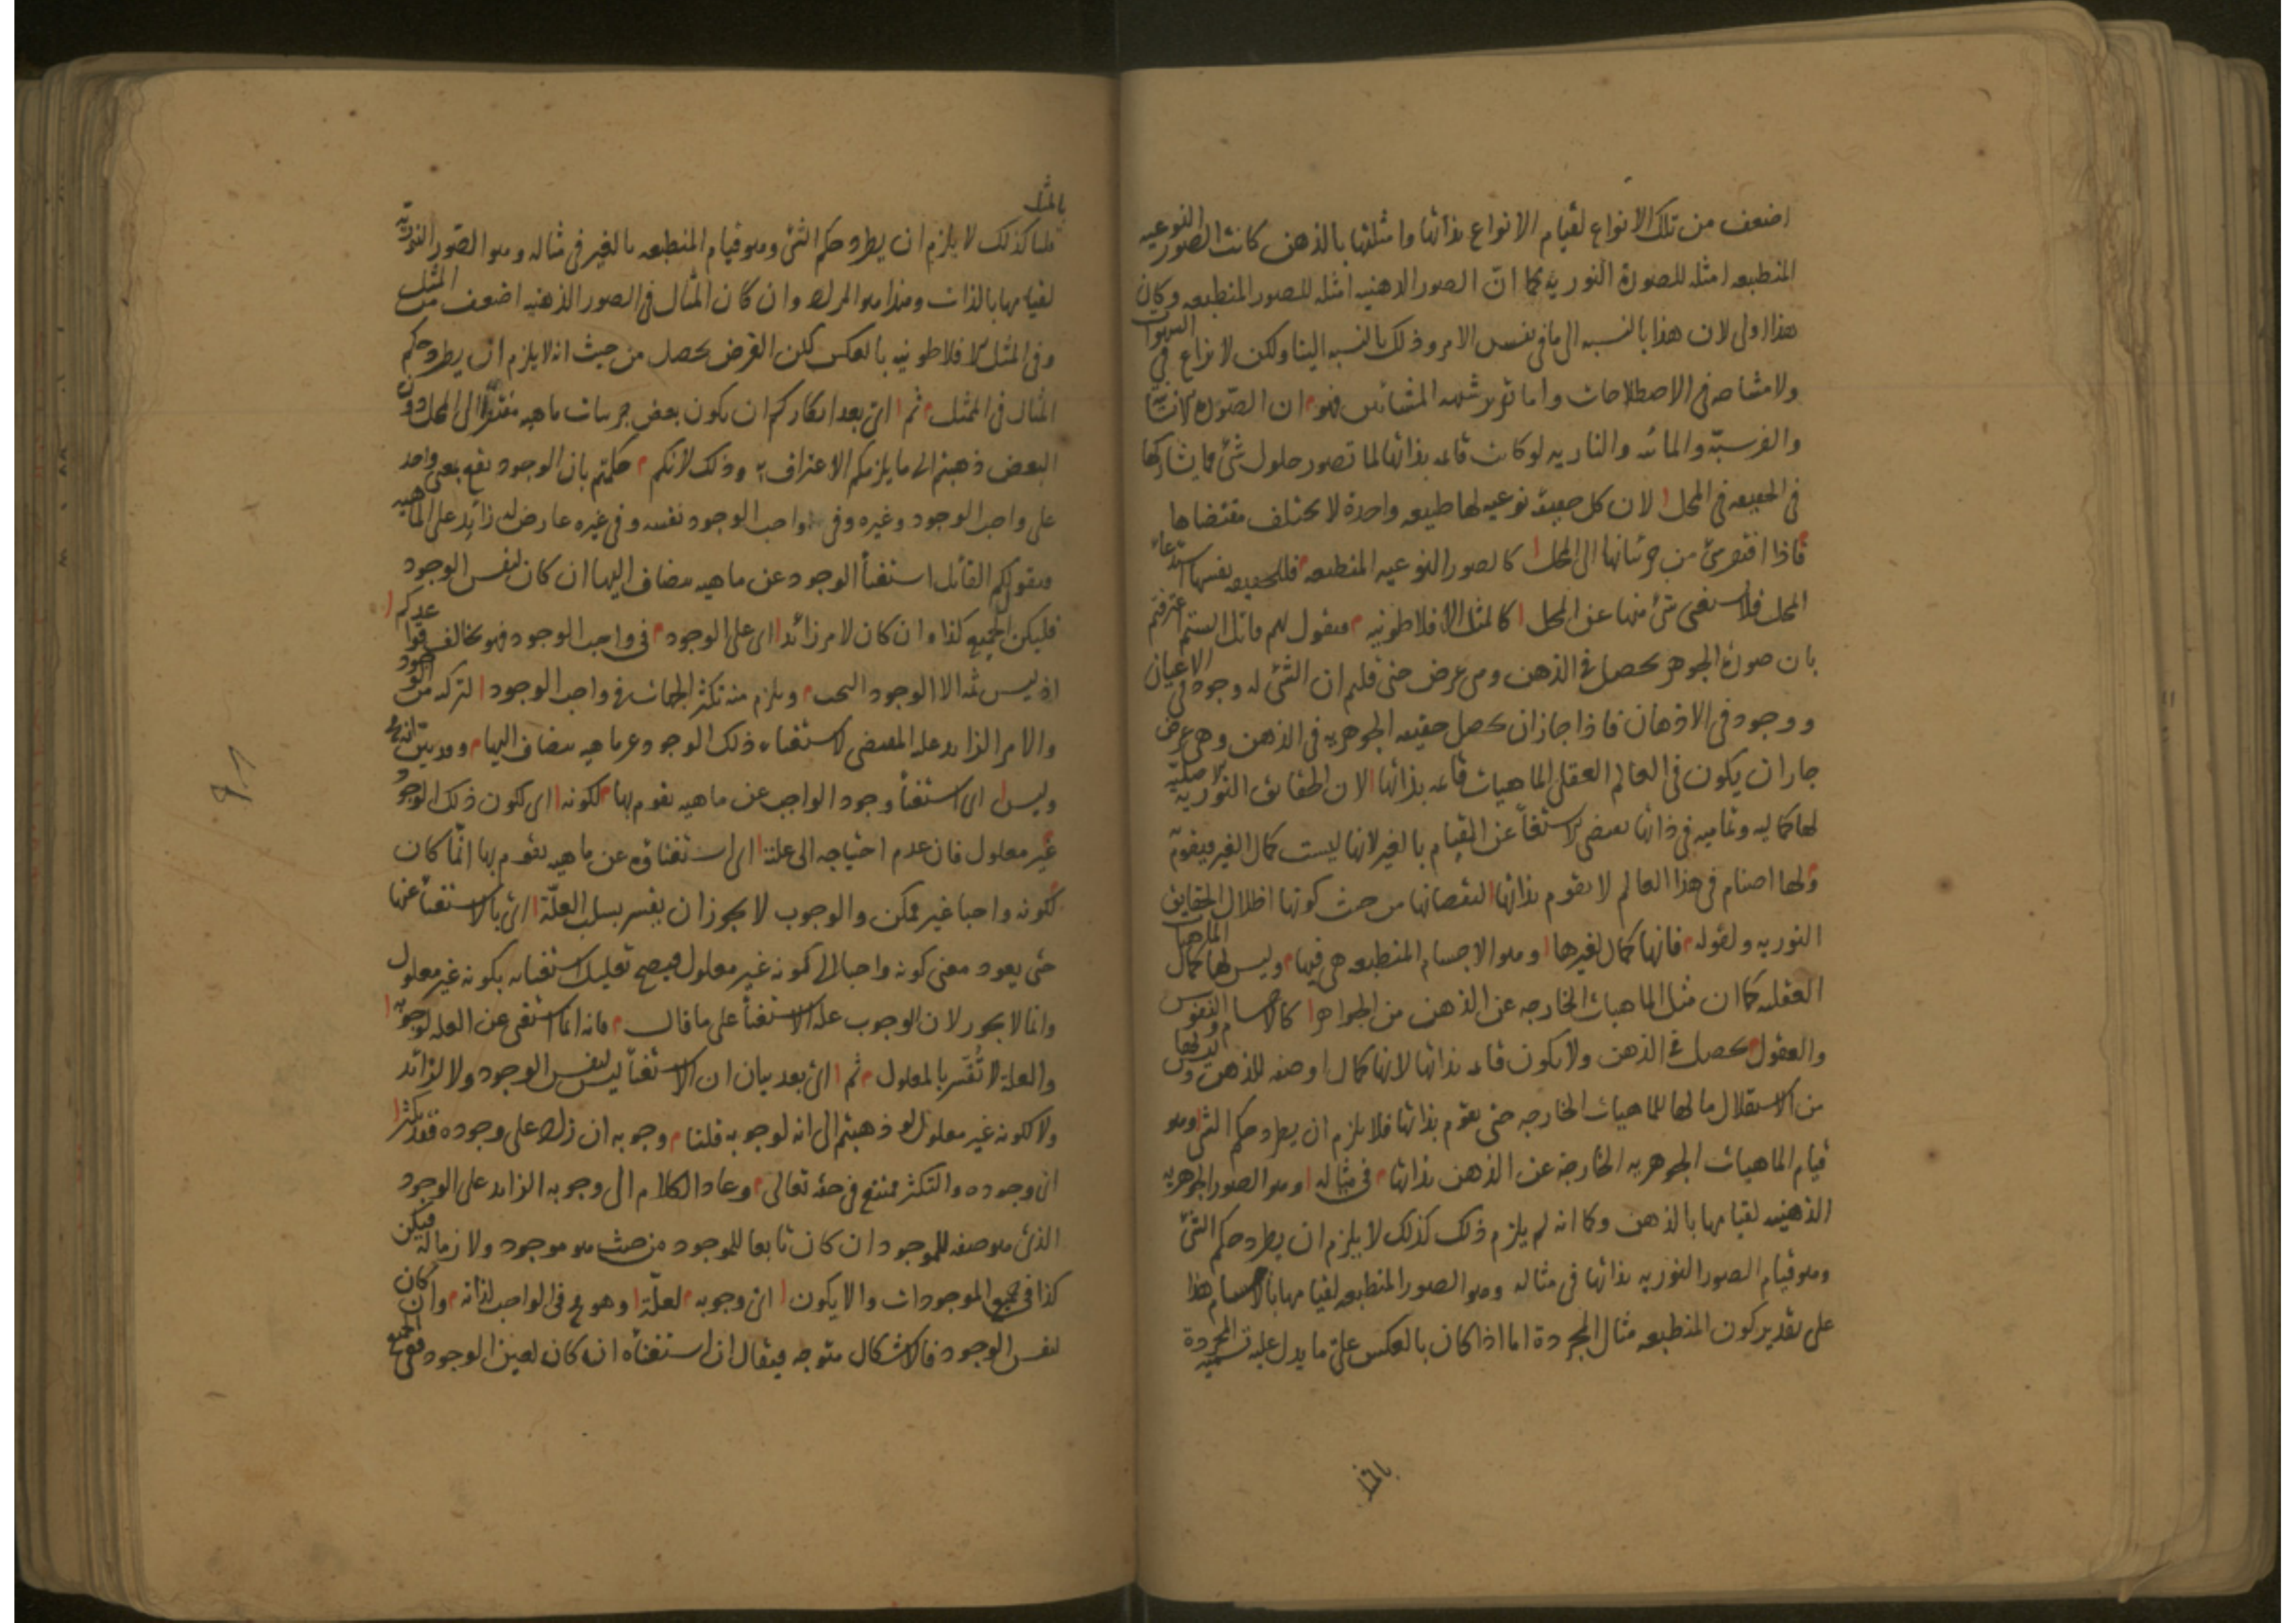 اضعف من تلك الانواع لقيام الانواع بذاتها وامثلتها بالذهن كانت الصور النوعيه
المنطبعه امثله للصورة النوريه كما ان الصور الذهنيه امثله للصور المنطبعه وكان
هذا اولى لان هذا بالنسبه الى ما فى نفس الامر وذلك بالنسبه الينا ولكن لا نزاع فى
ولا مشاحه فى الاصطلاحات واما تقرير شبهه المشائين فهو ان الصورة الانسانية
والفرسيّه والمائيه والناريه لو كانت قائمه بذاتها لما تصور حلول شئ مما يشاركها
فى الحقيقه فى المحل لان كل حقيقة نوعيه لها طبيعه واحدة لا يختلف مقتضاها
فاذا افتقر شئ من جزئياتها الى المحل كالصور النوعيه المنطبعه فللحقيقه نفسها استدعاء
المحل فلا يستغنى شئ منها عن المحل كالمثل الافلاطونيه فيقول لهم قائل الستم اعترفتم
بان صورة الجوهر تحصل فى الذهن وهى عرض حتى قلتم ان الشئ له وجود فى الاعيان
ووجود فى الاذهان فاذا جاز ان تحصل حقيقه الجوهريه فى الذهن وهى عرض
جاز ان يكون فى العالم العقلى الماهيات قائمه بذاتها لان الحقائق النورية الاصليّه
لها كماليه وتماميه فى ذاتها تقتضى الاستغناء عن القيام بالغير لانها ليست كمال الغير فيقوّم
ولها اصنام فى هذا العالم لا تقوم بذاتها لنقصانها من حيث كونها اظلال الحقايق
النوريه ولقوله فانها كمال لغيرها وهو الاجسام المنطبعه هى فيها وليس لها كمال الماهيات
العقليه كما ان مثل الماهيات الخارجه عن الذهن من الجواهر كالاجسام والنفوس
والعقول تحصل فى الذهن ولا تكون قائمه بذاتها لانها كمال او صفه للذهن وليس لها
من الاستقلال ما لها للماهيات الخارجه حتى تقوم بذاتها فلا يلزم ان يطرد حكم الشئ وهو
قيام الماهيات الجوهريه الخارجه عن الذهن بذاتها فى مثاله وهو الصور الجوهريه
الذهنيه لقيامها بالذهن وكما انه لم يلزم ذلك كذلك لا يلزم ان يطرد حكم الشئ
وهو قيام الصور النوريه بذاتها فى مثاله وهو الصور المنطبعه لقيامها بالاجسام هذا
على تقدير كون المنطبعه مثال المجردة اما اذا كان بالعكس على ما يدل عليه تسميه المجردة
بالمثل
بالمثل
قلنا كذلك لا يلزم ان يطرد حكم الشئ وهو قيام المنطبعه بالغير فى مثاله وهو الصور النوريّه
لقيامها بالذات وهذا هو المراد وان كان المثال فى الصور الذهنيه اضعف من المثل
وفى المثل الافلاطونيه بالعكس لكن الغرض يحصل من حيث انه لا يلزم ان يطرد حكم
المثال فى الممثل ثم اى بعد انكاركم ان يكون بعض جزييات ماهيه مفتقرا الى المحل دون
البعض ذهبتم الى ما يلزمكم الاعتراف به وذلك لانكم حكمتم بان الوجود يقع بمعنى واحد
على واجب الوجود وغيره وفى واجب الوجود نفسه وفى غيره عارض له زائد على الماهيه
فيقول لكم القائل استغناء الوجود عن ماهيه ينضاف اليها ان كان لنفس الوجود
فليكن الجميع كذا وان كان لامر زائد اى على الوجود فى واجب الوجود فهو يخالف قواعدكم
اذ ليس ثمه الا الوجود البحت ويلزم منه تكثر الجهات فى واجب الوجود لتركبه من الوجود
والامر الزايد عليه المقتضى لاستغناء ذلك الوجود عن ماهيه ينضاف اليها وقد تبيّن انه مح
وليس اى استغناء وجود الواجب عن ماهيه يقوم بها لكونه اى لكون ذلك الوجود
غير معلول فان عدم احتياجه الى علة اى استغناؤه عن ماهيه يقوم بها انّما كان
لكونه واجبا غير ممكن والوجوب لا يجوز ان يفسر بسلب العلّة اى بالاستغناء عنها
حتى يعود معنى كونه واجبا الى كونه غير معلول فيصح تعليل استغنائه بكونه غير معلول
وانما لا يجوز لان الوجوب علة الاستغناء على ما قال فانه انما استغنى عن العله لوجوبه
والعلة لا تُفسّر بالمعلول ثم اى بعد بيان ان الاستغناء ليس لنفس الوجود ولا لزائد
ولا لكونه غير معلول لو ذهبتم الى انه لوجوبه قلنا وجوبه ان زاد على وجوده فقد تكثر
اى وجوده والتكثر ممتنع فى حقه تعالى وعاد الكلام الى وجوبه الزايد على الوجود
الذى هو صفه للموجود ان كان تابعا للموجود من حيث هو موجود ولازما له فليكن
كذا فى جميع الموجودات والا يكون اى وجوبه لعلّة وهو مح فى الواجب لذاته وان كان
لنفس الوجود فالاشكال متوجه فيقال ان استغناه ان كان لعين الوجود ففى الجميع